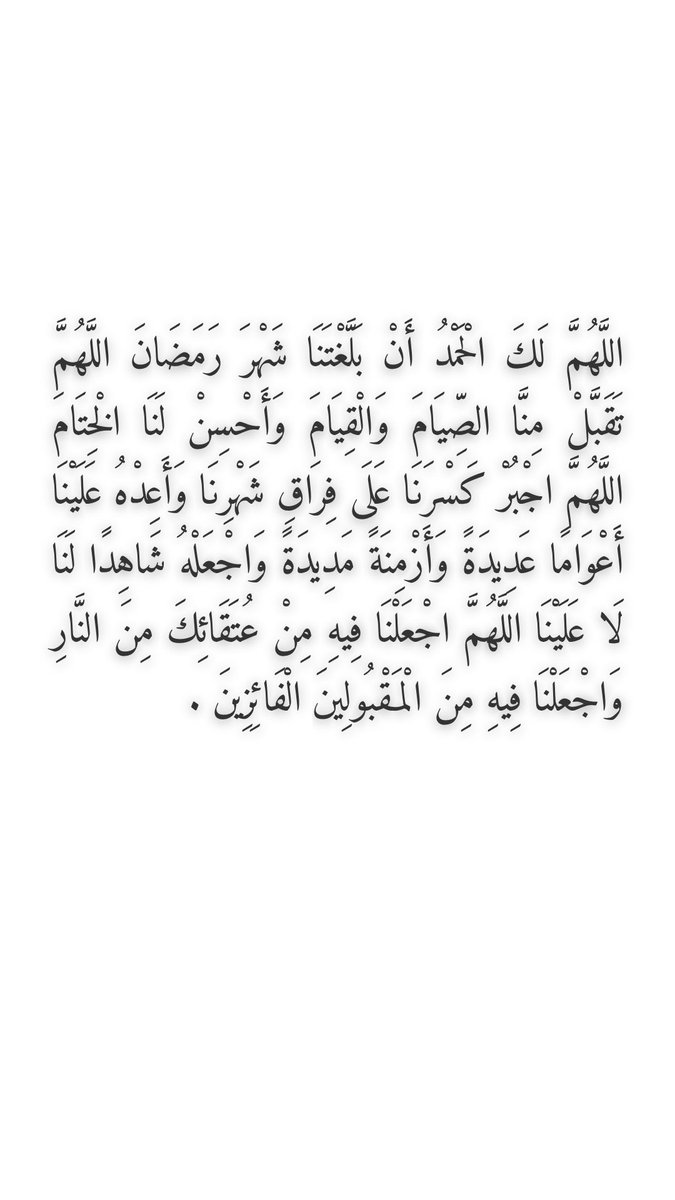 اللَّهُمَّ لَكَ الْحَمْدُ أَنْ بَلَّغْتَنَا شَهْرَ رَمَضَانَ اللَّهُمَّ
تَقَبَّلْ مِنَّا الصِّيَامَ وَالْقِيَامَ وَأَحْسِنْ لَنَا الْخِتَامَ
اللَّهُمَّ اجْبُرْ كَسْرَنَا عَلَى فِرَاقِ شَهْرِنَا وَأَعِدْهُ عَلَيْنَا
أَعْوَامًا عَدِيدَةً وَأَزْمِنَةً مَدِيدَةً وَاجْعَلْهُ شَاهِدًا لَنَا
لَا عَلَيْنَا اللَّهُمَّ اجْعَلْنَا فِيهِ مِنْ عُتَقَائِكَ مِنَ النَّارِ
وَاجْعَلْنَا فِيهِ مِنَ الْمَقْبُولِينَ الْفَائِزِينَ .